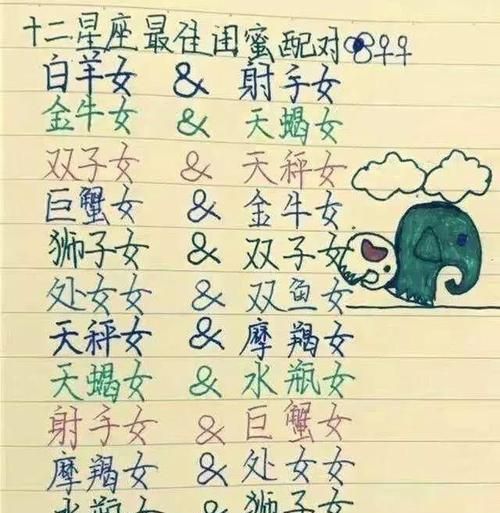 十二星座最佳闺蜜配对
白羊女 & 射手女
金牛女 & 天蝎女
双子女 & 天秤女
巨蟹女 & 金牛女
狮子女 & 双子女
处女女 & 双鱼女
天秤女 & 摩羯女
天蝎女 & 水瓶女
射手女 & 巨蟹女
摩羯女 & 处女女
水瓶女 & 狮子女